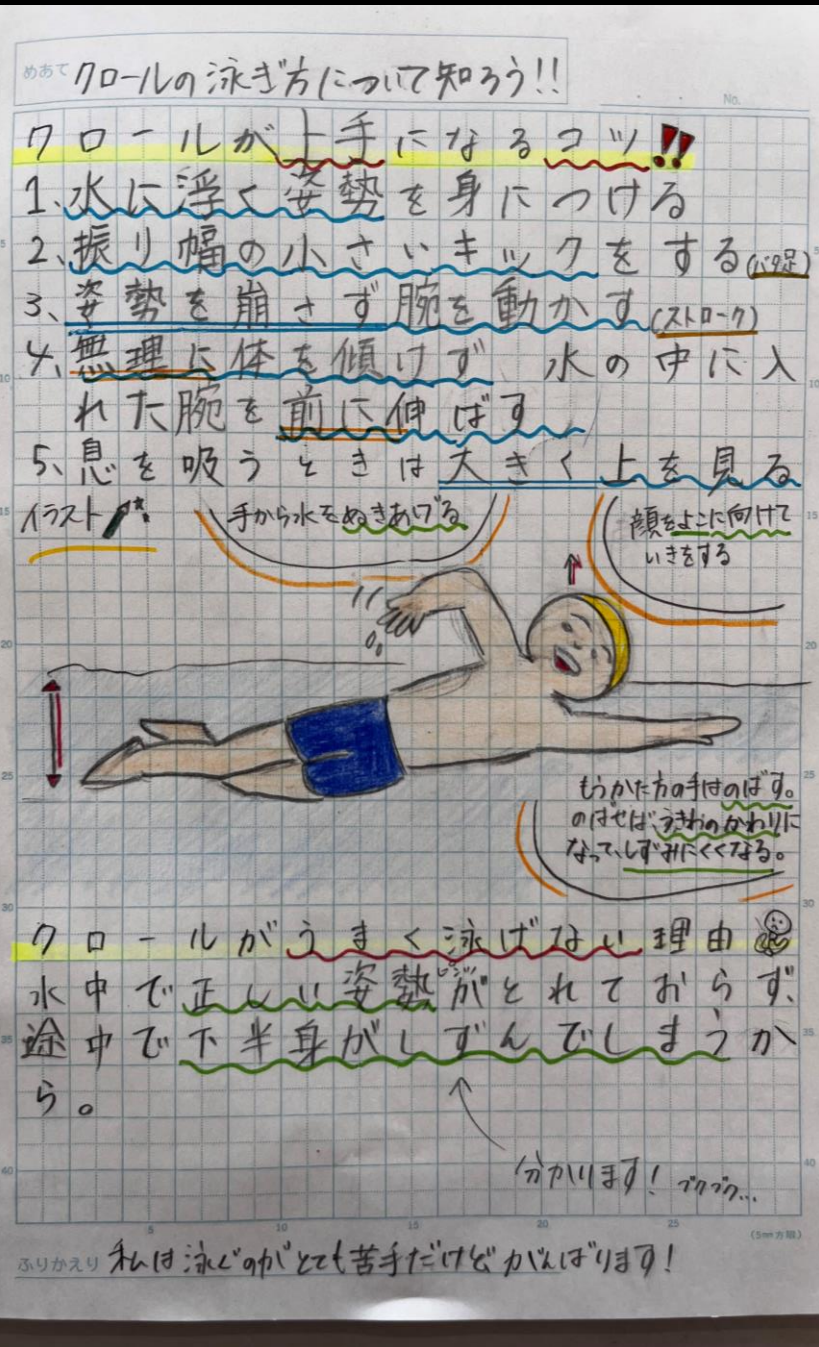 めあて クロールの泳ぎ方について知ろう!!
No.
クロールが上手になるコツ!!
1、水に浮く姿勢を身につける
2、振り幅の小さいキックをする(バタ足)
3、姿勢を崩さず腕を動かす(ストローク)
4、無理に体を傾けず 水の中に入
れた腕を前に伸ばす
5、息を吸うときは大きく上を見る
イラスト
手から水をぬきあげる
顔をよこに向けて
いきをする
もうかた方の手はのばす。
のばせば、うきわのかわりに
なって、しずみにくくなる。
クロールがうまく泳げない理由
水中で正しい姿勢がとれておらず、
途中で下半身がしずんでしまうか
ら。
分かります! ブクブク...
5 10 15 20 25 (5mm方眼)
ふりかえり 私は泳ぐのがとても苦手だけどがんばります!